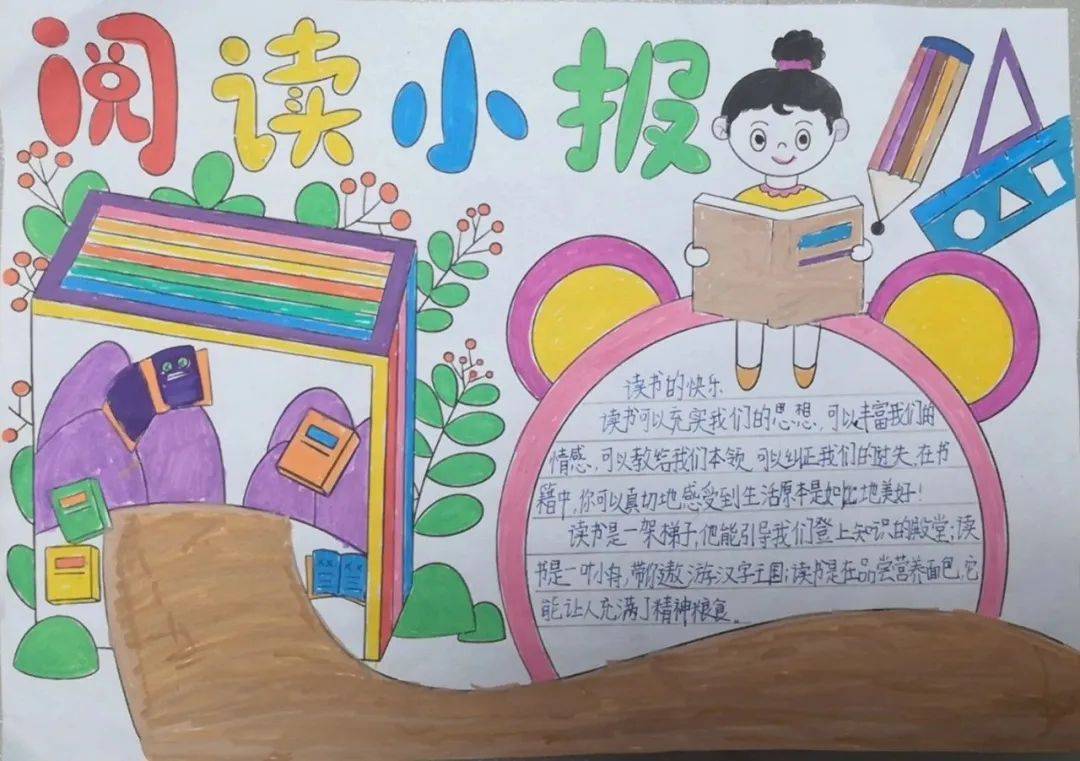 阅读小报
读书的快乐
读书可以充实我们的思想,可以丰富我们的
情感,可以教给我们本领,可以纠正我们的过失。在书
籍中,你可以真切地感受到生活原本是如此地美好!
读书是一架梯子,他能引导我们登上知识的殿堂;读
书是一叶小舟,带你遨游汉字王国;读书是在品尝营养面包,它
能让人充满了精神粮食。